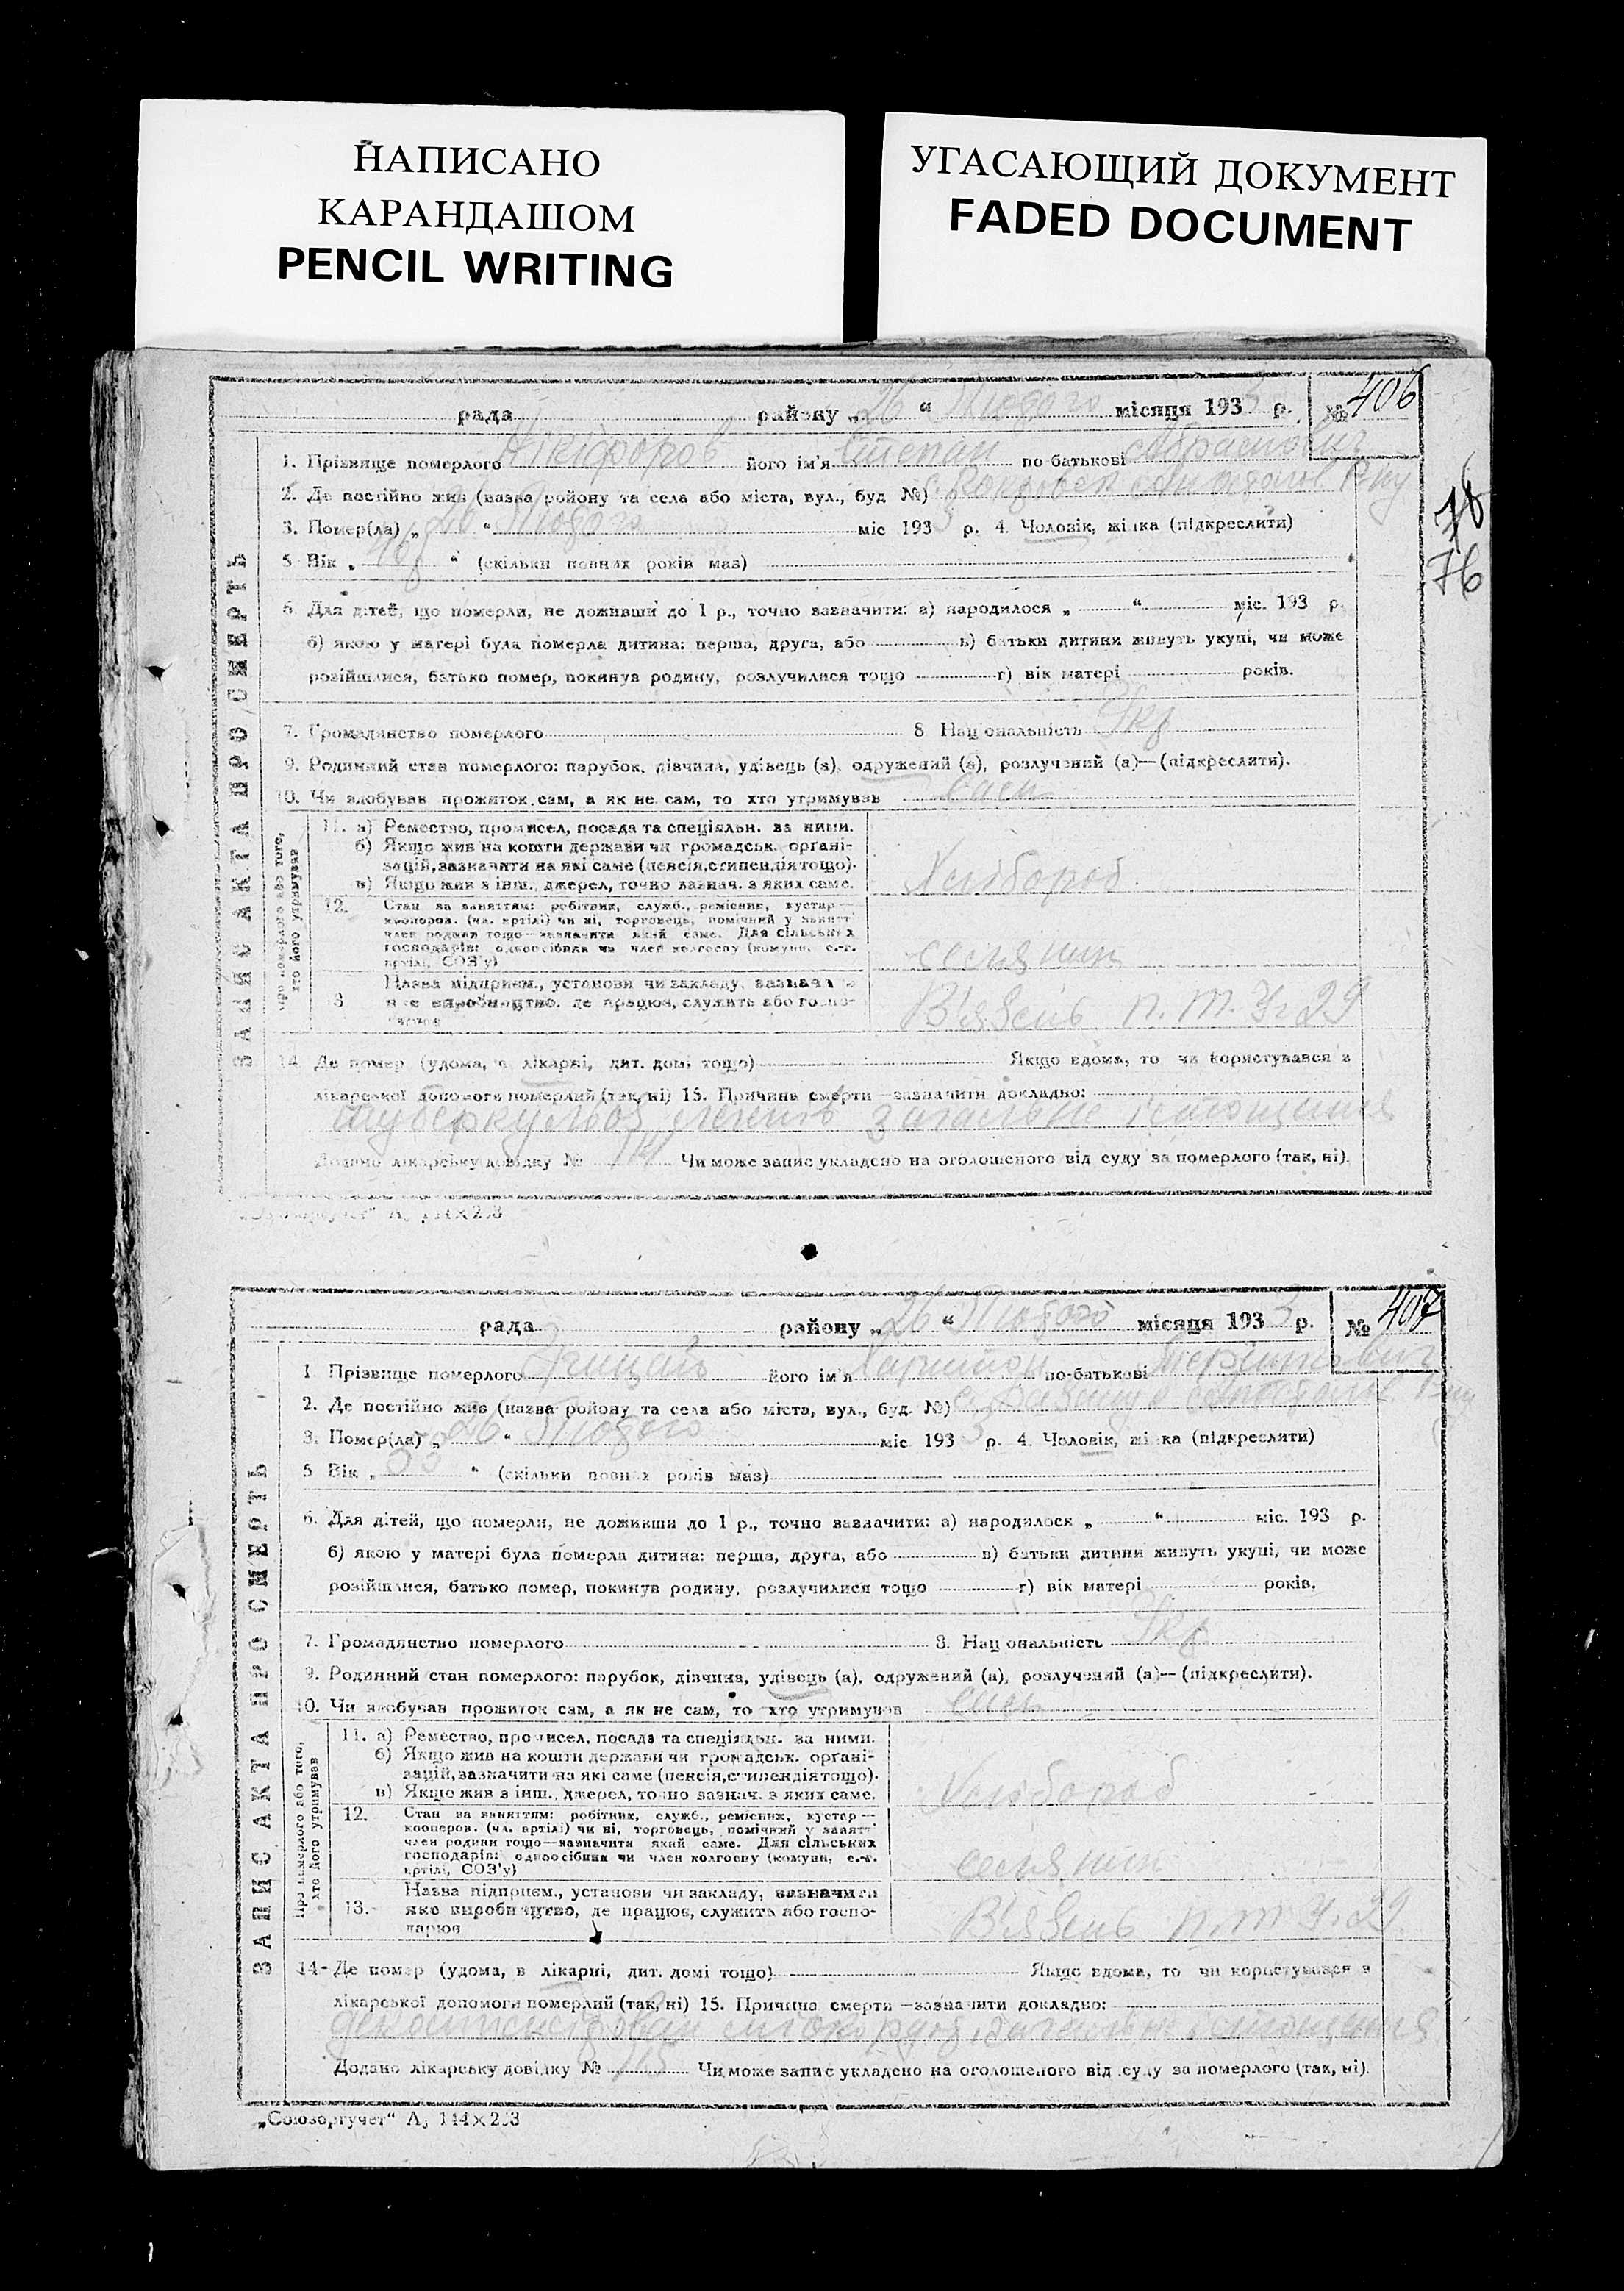 НАПИСАНО
КАРАНДАШОМ
PENCIL WRITING
УГАСАЮЩИЙ ДОКУМЕНТ
FADED DOCUMENT
рада району „26“ Лютого місяця 1933 р. № 406
1. Прізвище померлого Нікіфоров його ім'я Степан по-батькові
2. Де постійно жив (назва району та села або міста, вул., буд. №)
3. Помер(ла) „26“ Лютого міс 1933 р. 4. Чоловік, жінка (підкреслити)
76
5. Вік „ “ (скільки повних років мав)
76
6. Для дітей, що померли, не доживши до 1 р., точно зазначити: а) народилося „ “ міс. 193 р.
б) якою у матері була померла дитина: перша, друга, або в) батьки дитини живуть укупі, чи може
розійшлися, батько помер, покинув родину, розлучилися тощо г) вік матері років.
7. Громадянство померлого 8. Національність Укр
9. Родинний стан померлого: парубок, дівчина, удівець (а), одружений (а), розлучений (а)—(підкреслити).
10. Чи здобував прожиток сам, а як не сам, то хто утримував сам
ЗАПИС АКТА ПРО СМЕРТЬ
Про померлого або того, хто його утримував
11. а) Ремество, промисел, посада та спеціяльн. за ними.
б) Якщо жив на кошти держави чи громадськ. органі-
зацій, зазначити на які саме (пенсія, стипендія тощо).
в) Якщо жив з інш., джерел, точно зазнач. з яких саме.
Хлібороб
12. Стан за заняттям: робітник, служб., ремісник, кустар—
кооперов. (чл. артілі) чи ні, торговець, помічний у занятт
член родини тощо—зазначити який саме. Для сільських
господарів: одноосібник чи член колгоспу (комуни, с.-г.
артілі, СОЗ'у)
селянин
Назва підприєм., установи чи закладу, зазначити
13. яке виробництво, де працює, служить або госпо-
дарює
В'язень п.т. У. 29
14. Де помер (удома, в лікарні, дит. домі тощо) Якщо вдома, то чи користувався з
лікарської допомоги померлий (так, ні) 15. Причина смерти—зазначити докладно:
туберкульоз легенів загальне
Додано лікарську довідку № 114 Чи може запис укладено на оголошеного від суду за померлого (так, ні).
„Союзоргучет“ А5 144×203
рада району „26“ Лютого місяця 1933 р. № 407
1. Прізвище померлого Грицай його ім'я Харитон по-батькові
2. Де постійно жив (назва району та села або міста, вул., буд. №)
3. Помер(ла) „26“ Лютого міс 1933 р. 4. Чоловік, жінка (підкреслити)
5. Вік „ “ (скільки повних років мав)
6. Для дітей, що померли, не доживши до 1 р., точно зазначити: а) народилося „ “ міс. 193 р.
б) якою у матері була померла дитина: перша, друга, або в) батьки дитини живуть укупі, чи може
розійшлися, батько помер, покинув родину, розлучилися тощо г) вік матері років.
7. Громадянство померлого 8. Національність Укр
9. Родинний стан померлого: парубок, дівчина, удівець (а), одружений (а), розлучений (а)—(підкреслити).
10. Чи здобував прожиток сам, а як не сам, то хто утримував сам
ЗАПИС АКТА ПРО СМЕРТЬ
Про померлого або того, хто його утримував
11. а) Ремество, промисел, посада та спеціяльн. за ними.
б) Якщо жив на кошти держави чи громадськ. органі-
зацій, зазначити на які саме (пенсія, стипендія тощо).
в) Якщо жив з інш., джерел, точно зазнач. з яких саме.
Хлібороб
12. Стан за заняттям: робітник, служб., ремісник, кустар—
кооперов. (чл. артілі) чи ні, торговець, помічний у занятт
член родини тощо—зазначити який саме. Для сільських
господарів: одноосібник чи член колгоспу (комуни, с.-г.
артілі, СОЗ'у)
селянин
Назва підприєм., установи чи закладу, зазначити
13. яке виробництво, де працює, служить або госпо-
дарює
В'язень п.т. У. 29
14. Де помер (удома, в лікарні, дит. домі тощо) Якщо вдома, то чи користувався з
лікарської допомоги померлий (так, ні) 15. Причина смерти—зазначити докладно:
Додано лікарську довідку № 115 Чи може запис укладено на оголошеного від суду за померлого (так, ні).
„Союзоргучет“ А5 144×203